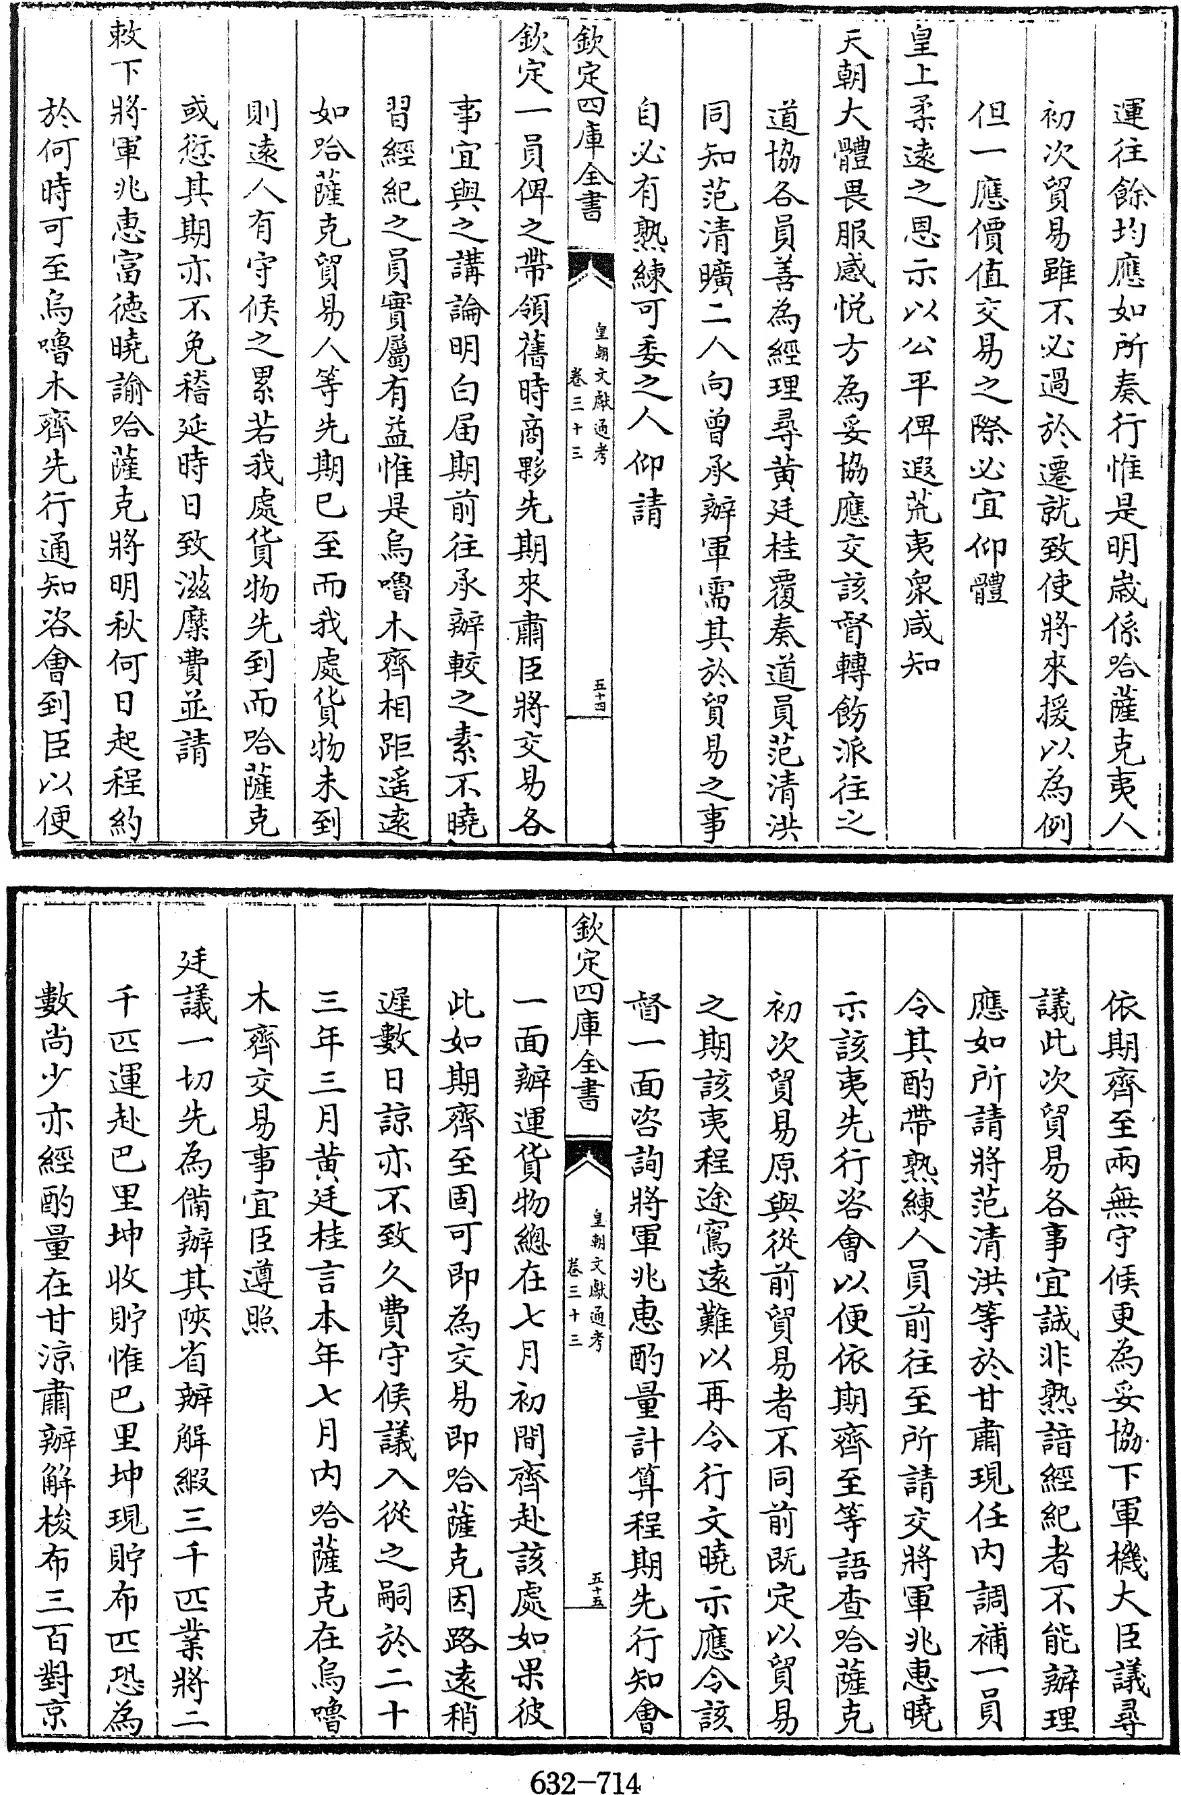 運往餘均應如所奏行惟是明歲係哈薩克夷人
初次貿易雖不必過於遷就致使將來援以為例
但一應價值交易之際必宜仰體
皇上柔遠之恩示以公平俾遐荒夷衆咸知
天朝大體畏服感悅方為妥協應交該督轉飭派往之
道協各員善為經理尋黃廷桂覆奏道員范清洪
同知范清曠二人向曾承辦軍需其於貿易之事
自必有熟練可委之人仰請
欽定四庫全書
皇朝文獻通考
卷三十三
五十四
欽定一員俾之帶領舊時商夥先期來肅臣將交易各
事宜與之講論明白届期前往承辦較之素不曉
習經紀之員實屬有益惟是烏嚕木齊相距遥逺
如哈薩克貿易人等先期已至而我處貨物未到
則遠人有守候之累若我處貨物先到而哈薩克
或愆其期亦不免稽延時日致滋糜費並請
敕下將軍兆惠富德曉諭哈薩克將明秋何日起程約
於何時可至烏嚕木齊先行通知洛會到臣以便
依期齊至兩無守候更為妥協下軍機大臣議尋
議此次貿易各事宜誠非熟諳經紀者不能辦理
應如所請將范清洪等於甘肅現任內調補一員
令其酌帶熟練人員前往至所請交將軍兆惠曉
示該夷先行咨會以便依期齊至等語查哈薩克
初次貿易原與從前貿易者不同前既定以貿易
之期該夷程途窵遠難以再令行文曉示應令該
督一面咨詢將軍兆惠酌量計算程期先行知會
欽定四庫全書
皇朝文獻通考
卷三十三
五十五
一面辦運貨物總在七月初間齊赴該處如果彼
此如期齊至固可即為交易即哈薩克因路遠稍
遲數日諒亦不致久費守候議入從之嗣於二十
三年三月黃廷桂言本年七月內哈薩克在烏嚕
木齊交易事宜臣遵照
廷議一切先為備辦其陝省辦解緞三千匹業將二
千匹運赴巴里坤收貯惟巴里坤現貯布匹恐為
數尚少亦經酌量在甘涼肅辦解梭布三百對京
632-714